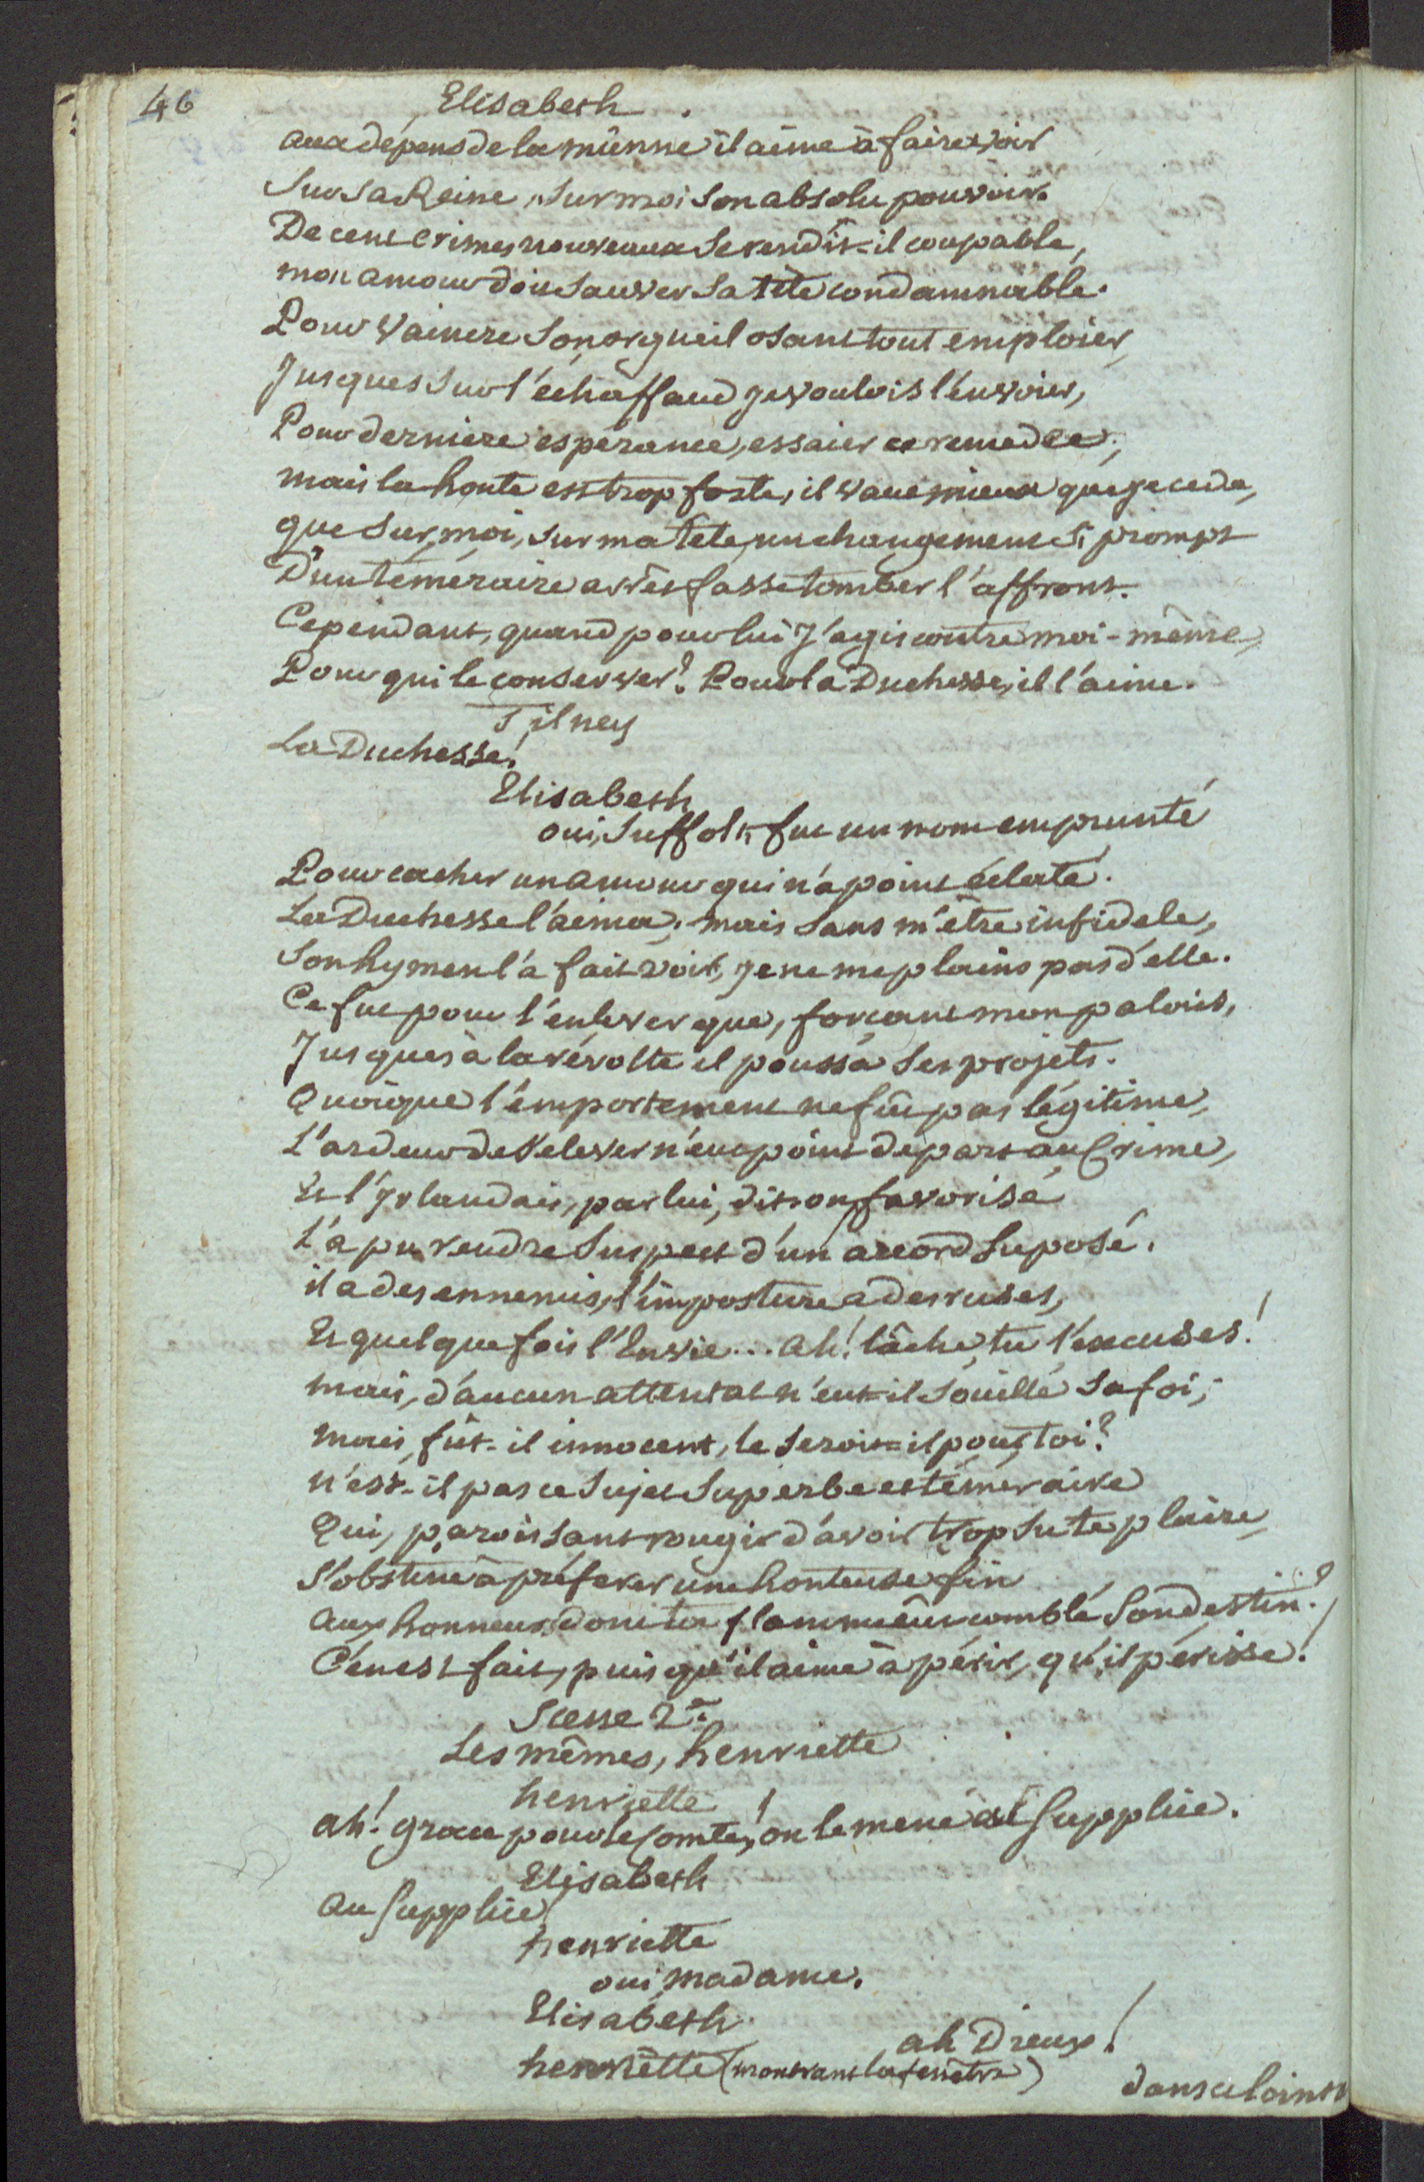 46
Elisabeth.
aux dépens de la mienne il aime à faire voir
Sur Sa Reine, sur moi son absolu pouvoir.
De cent crimes nouveaux se rendit-il coupable,
mon amour doit sauver sa tête condamnable.
Pour vaincre son orgueil osant tout emploier,
Jusques sur l'échaffaud je voulois l'envoier,
Pour derniere espérance, essaier ce remede;
mais la honte est trop forte, il vaut mieux que je cede,
que sur moi, sur ma tête, un changement si prompt
D'un téméraire arrêt fasse tomber l'affront.
Cependant, quand pour lui J'agis contre moi-même,
Pour qui le conserver? Pour la Duchesse, il l'aime.
Tilney
La Duchesse!
Elisabeth
oui, Suffolk fut un nom emprunté
Pour cacher un amour qui n'a point éclaté.
La Duchesse l'aima; mais sans m'être infidele,
Son hymen l'a fait voir, je ne me plains pas d'elle.
Ce fut pour l'enlever que, forcant mon palais,
Jusques à la révolte il poussa ses projets.
Quoique l'emportement ne fût pas légitime,
L'ardeur de s'élever n'eut point de part au Crime,
Et l'Irlandais, par lui, dit-on favorisé
L'a pu rendre suspect d'un accord suposé.
il a des ennemis, l'imposture a des ruses,
Et quelquefois l'Envie... Ah! lâche, tu l'excuses!
mais, d'aucun attentat n'eut-il souillé sa foi,
mais, fût-il innocent, le seroit-il pour toi?
n'est-il pas ce sujet superbe et témeraire
Qui, paroissant rougir d'avoir trop su te plaire,
S'obstine à préferer une honteuse fin
aux honneurs dont ta flamme eût comblé son destin?
C'en est fait, puisqu'il aime à périr, qu'il périsse!
Scene 2e.
Les mêmes, henriette
henriette
ah! grace pour le Comte! on le mene au Supplice.
Elisabeth
au Supplice
henriette
oui madame.
Elisabeth
ah Dieux!
henriette (montrant la fenêtre)
dans ce loint